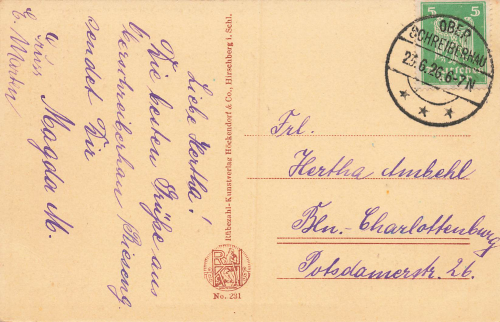 Liebe Hertha!
Die besten Grüße aus
Oberschreiberhau Rieseng.
sendet Dir
Magda M.
Rübezahl-Kunstverlag Höckendorf & Co., Hirschberg i. Schl.
No. 221
5 5
OBER
SCHREIBERHAU
23.6.26.6-7N
Frl.
Hertha Ambehl
Bln.-Charlottenburg
Potsdamerstr. 26.